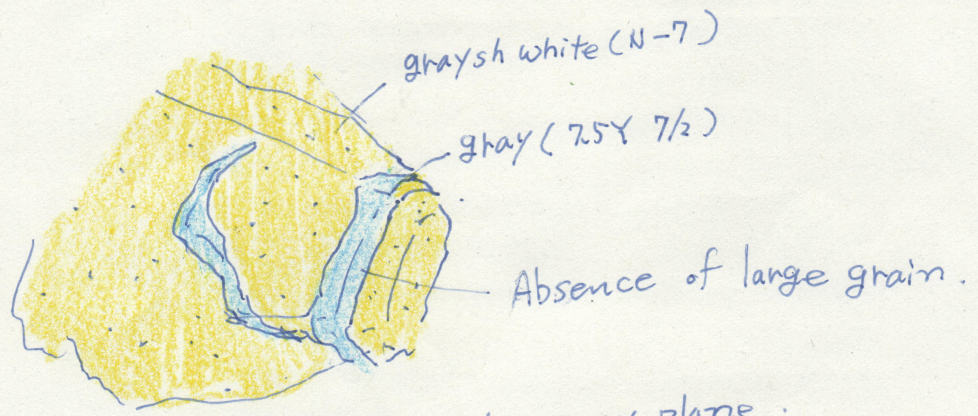 graysh white (N-7)
gray (7.5Y 7/2)
Absence of large grain.
plane.